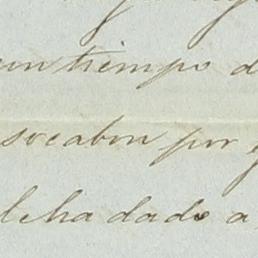 un tiempo d
socabon por
le ha dado a